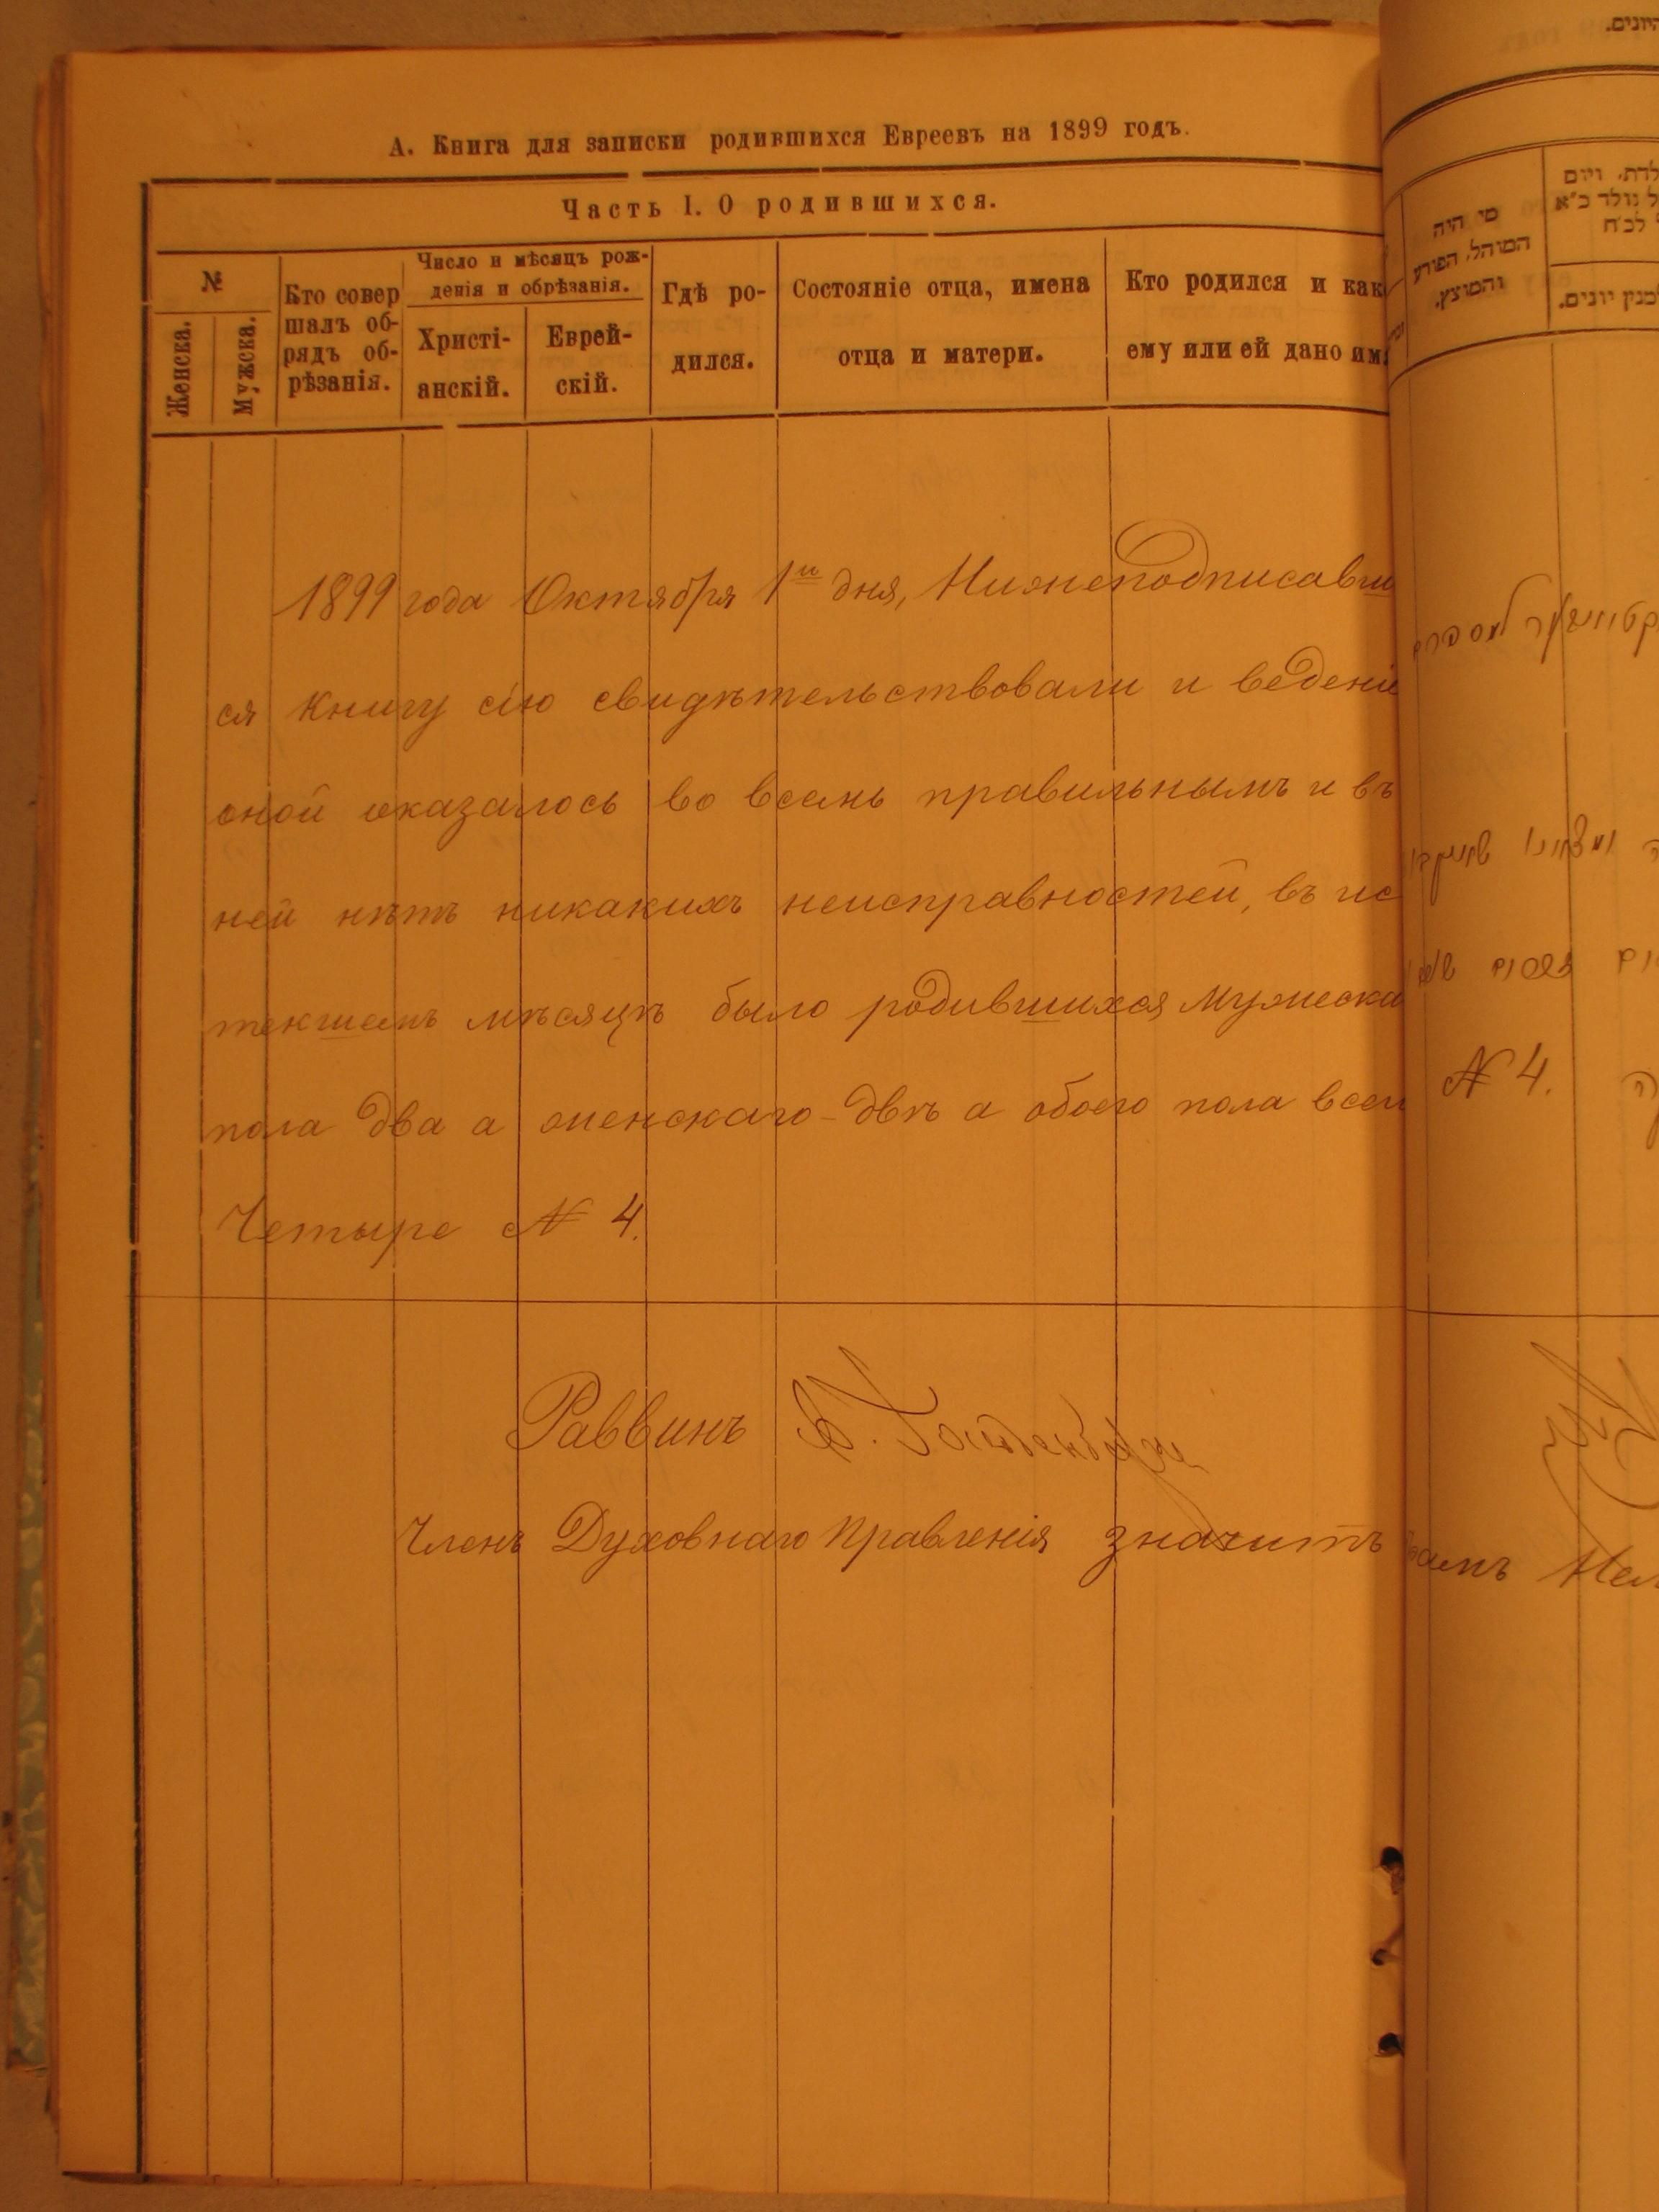 А. Книга для записки родившихся Евреевъ на 1899 годъ.
Часть I. О родившихся.
№
Женска.
Мужска.
Кто совер
шалъ об-
рядъ об-
рѣзанія.
Число и мѣсяцъ рож-
денія и обрѣзанія.
Христі-
анскій.
Еврей-
скій.
Гдѣ ро-
дился.
Состояніе отца, имена
отца и матери.
Кто родился и как
ему или ей дано им
1899 года Октября 1го дня, Нижеподписавши
ся книгу сію свидѣтельствовали и веденіе
оной оказалось во всемъ правильнымъ и въ
ней нѣтъ никакихъ неисправностей, въ ис
текшемъ мѣсяцѣ было родившихся мужеска
пола два а женскаго - двѣ а обоего пола всего
Четыре № 4.
Раввинъ
Членъ Духовнаго Правленія значитъ
היונים.
מי היה
המוהל, הפורע
והמוצץ.
לדת, ויום
ל נולד כ״א
לכ״ח
למנין יונים.
№ 4.